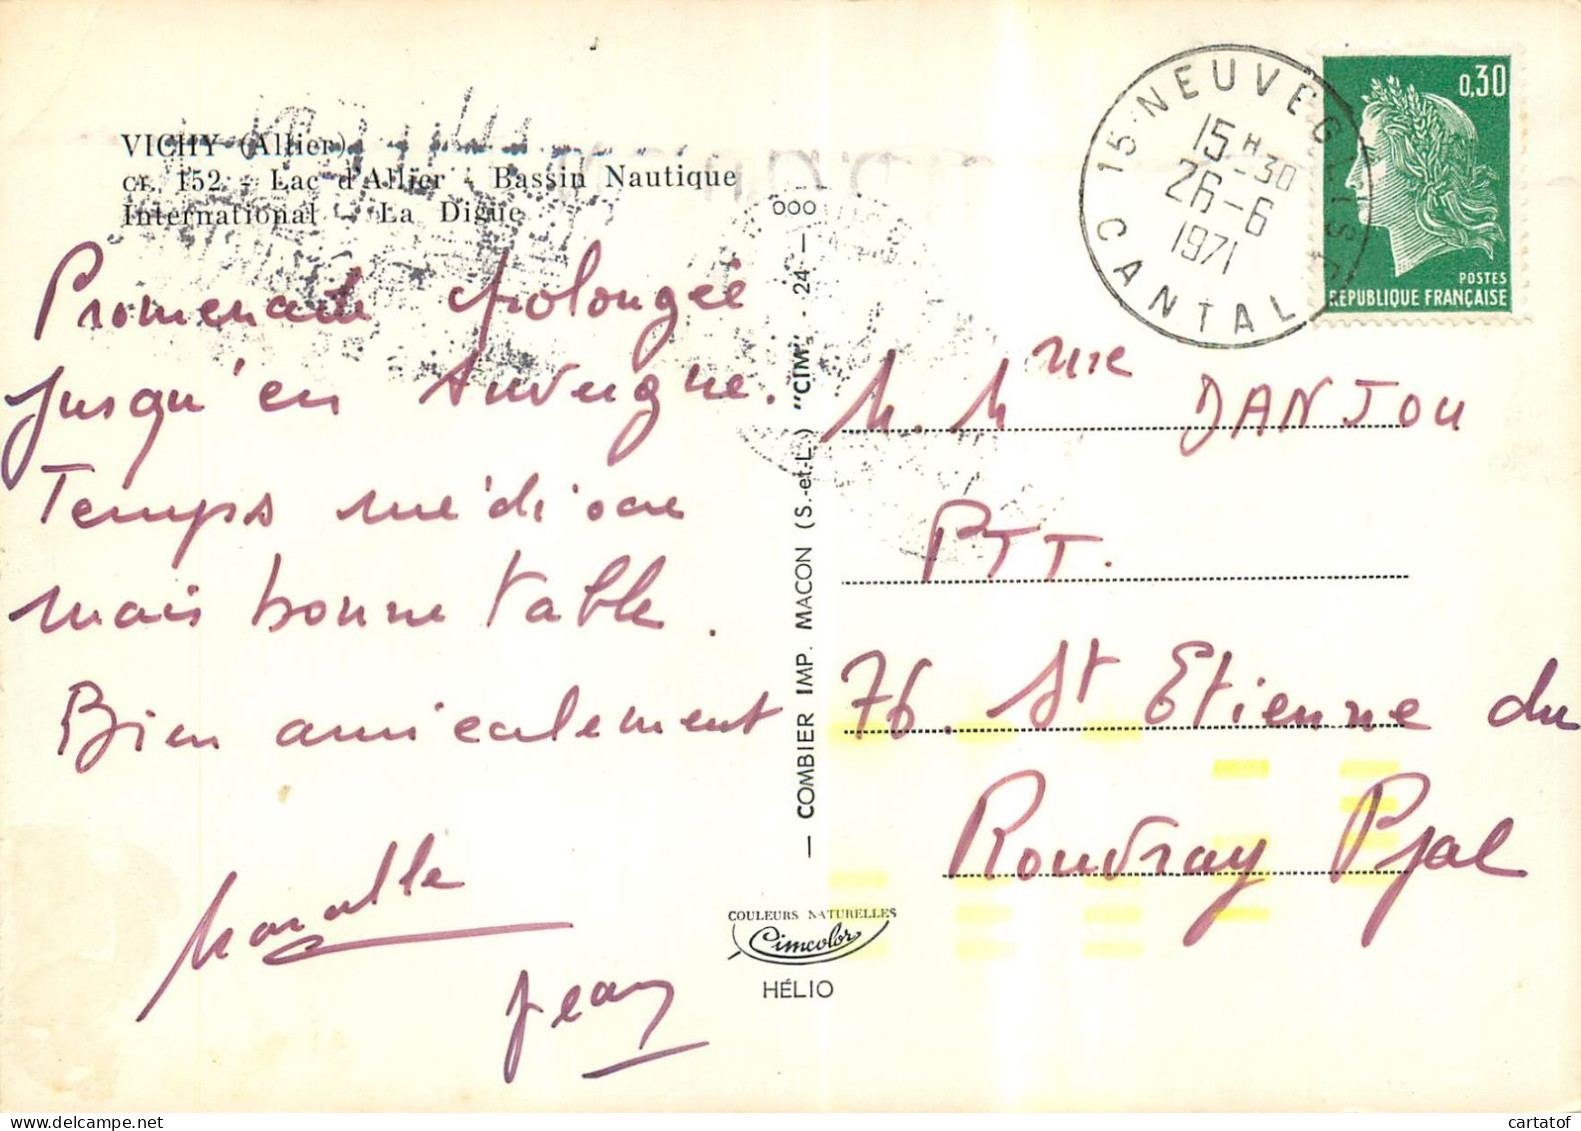 VICHY (Allier)
CE. 152 - Lac d'Allier - Bassin Nautique
International - La Digue
Promenade prolongée
jusqu'en Auvergne.
Temps médiocre
mais bonne table.
Bien amicalement
Marcelle
Jean
15 NEUVEGLISE
15H30
26-6
1971
CANTAL
0,30
POSTES
RÉPUBLIQUE FRANÇAISE
M. Mme DANJOU
PTT.
76. St Etienne du
Rouvray Ppal
000
— COMBIER IMP. MACON (S.-et-L.) "CIM" - 24 —
COULEURS NATURELLES
Cimcolor
HÉLIO
cartatof